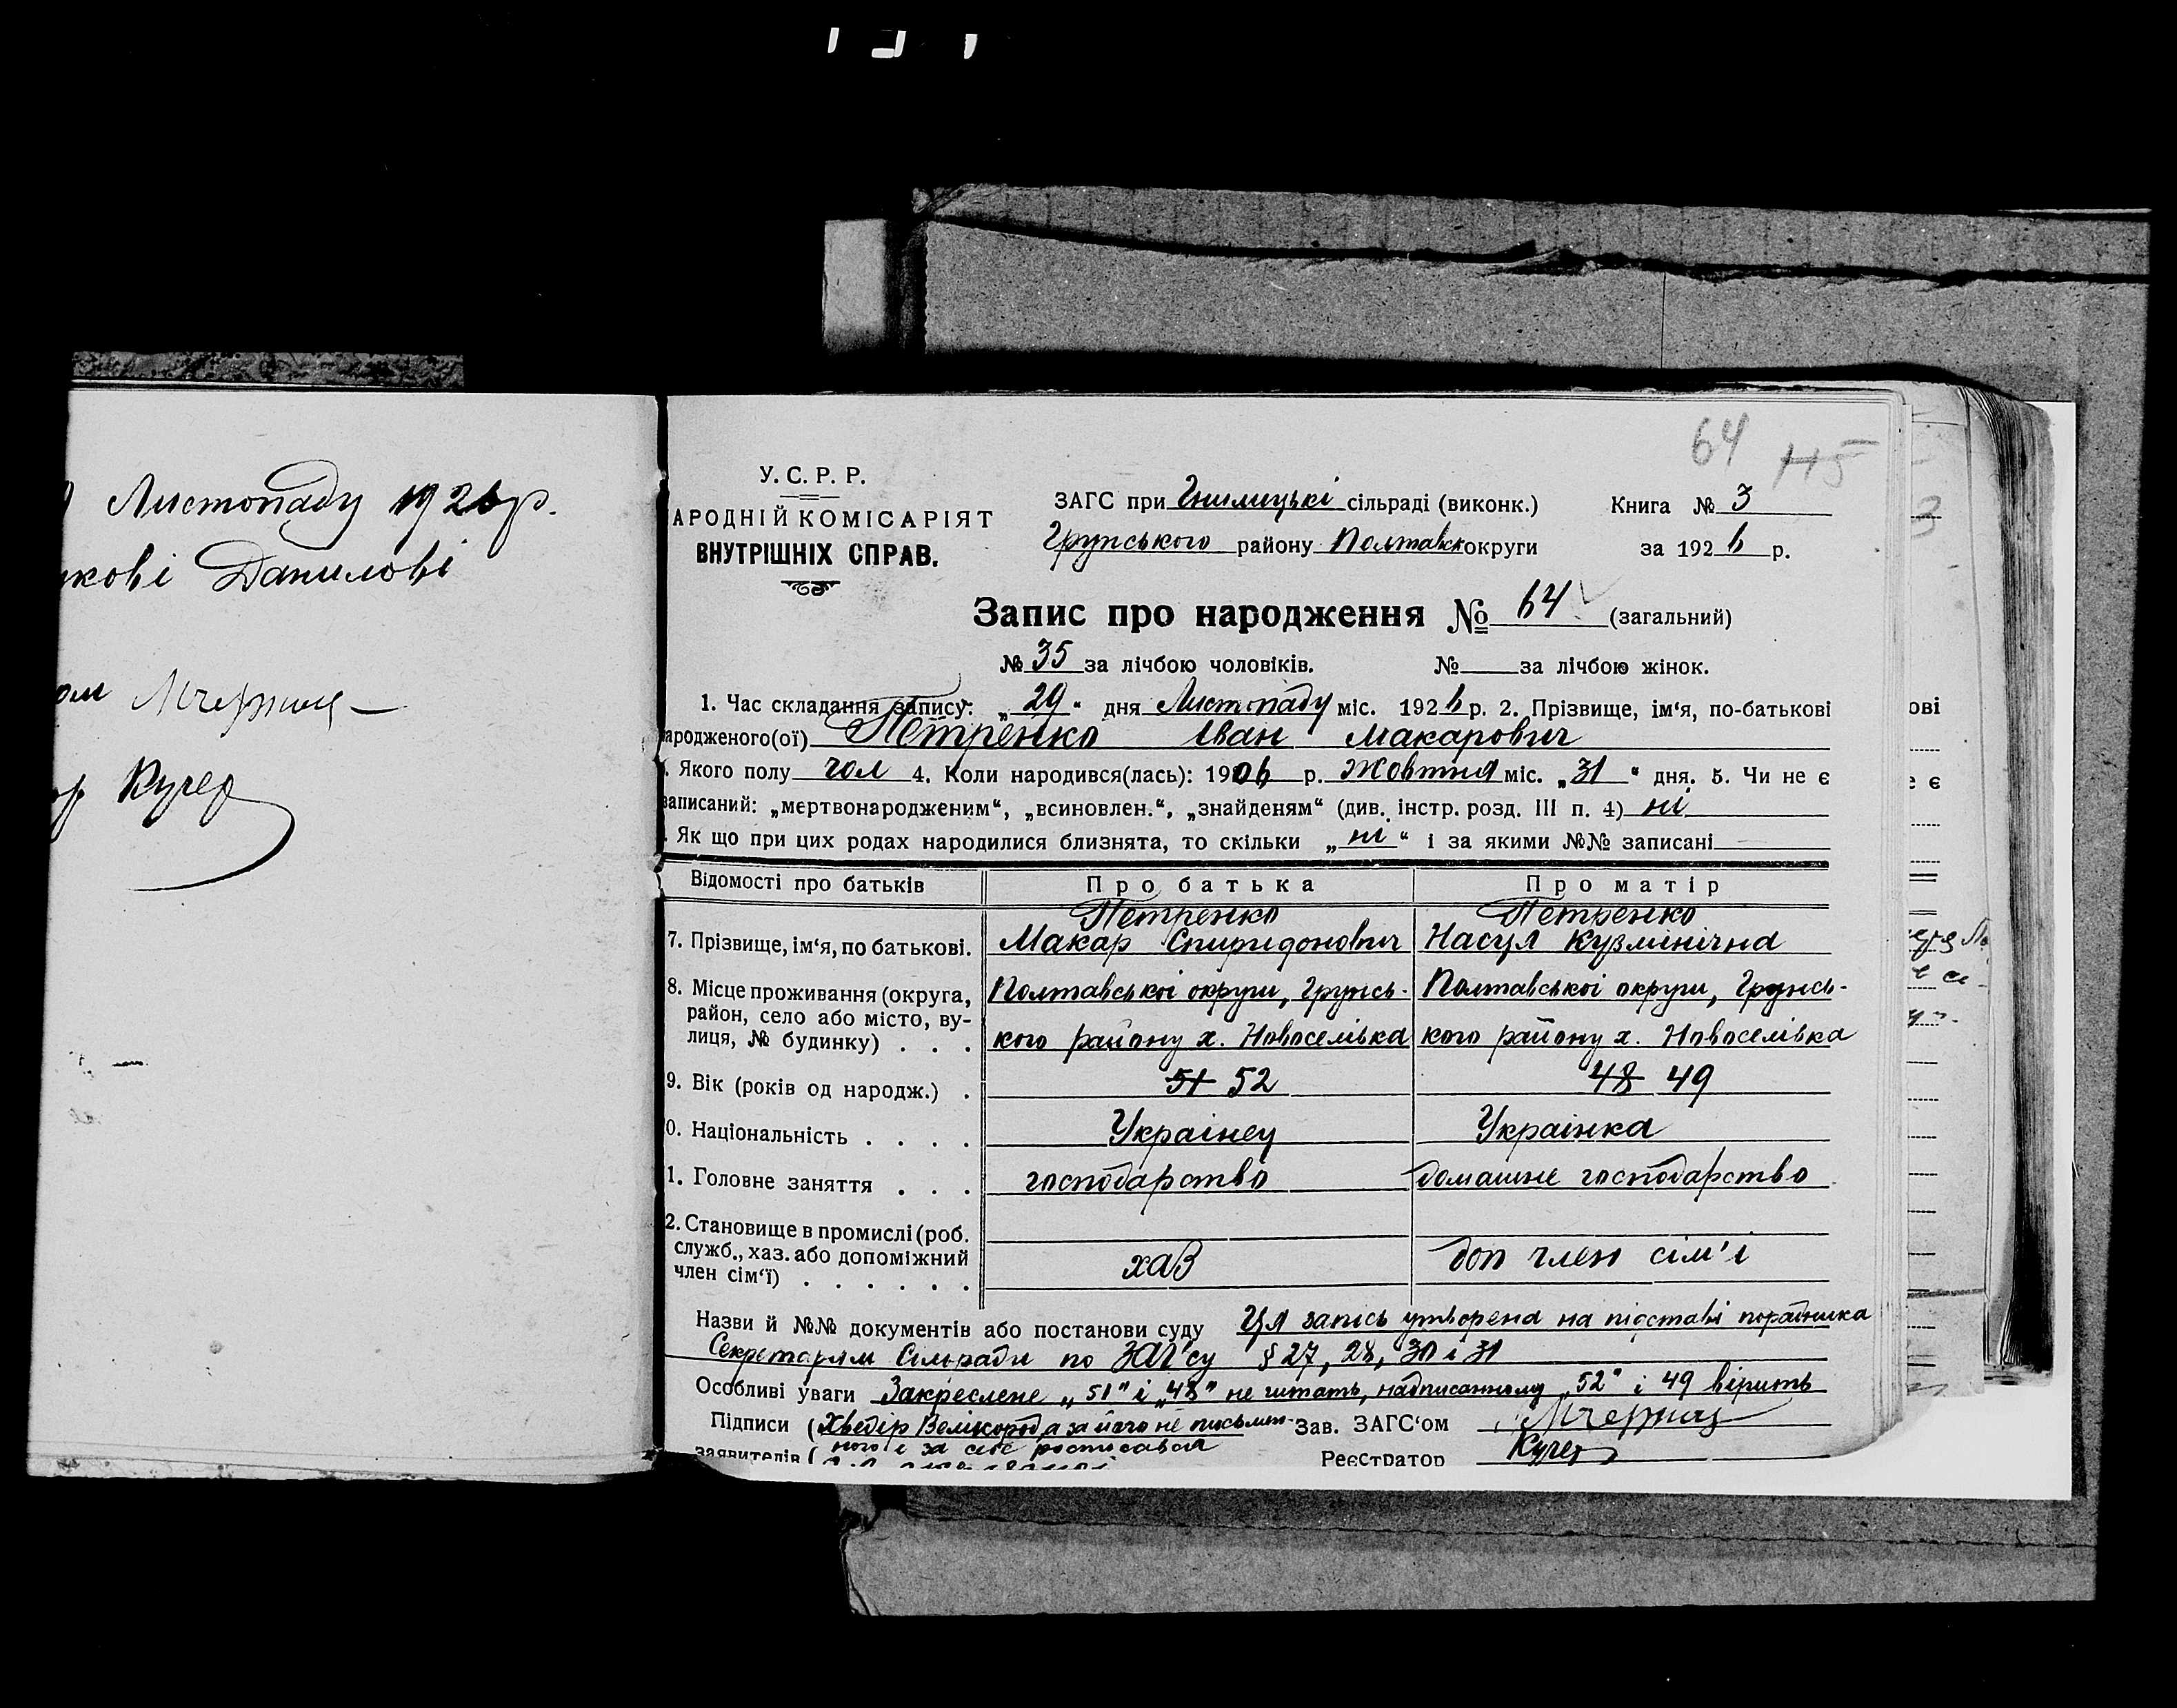 Листопаду 1926 р.
Данилові
Кучер
64 115
У.С.Р.Р.
АРОДНІЙ КОМІСАРІЯТ
ВНУТРІШНІХ СПРАВ.
ЗАГС при Гнилицькі сільраді (виконк.) Книга № 3
Грунського району Полтавськ округи за 1926 р.
Запис про народження № 64 (загальний)
№ 35 за лічбою чоловіків. № за лічбою жінок.
1. Час складання запису: „29“ дня Листопаду міс. 1926 р. 2. Прізвище, ім‘я, по-батькові
ародженого(ої) Петренко Іван Макарович
. Якого полу чол 4. Коли народився(лась): 1906 р. Жовтня міс. „31“ дня. 5. Чи не є
записаний: „мертвонародженим“, „всиновлен.“, „знайденям“ (див. інстр. розд. III п. 4) ні
. Як що при цих родах народилися близнята, то скільки „ні“ і за якими №№ записані
Відомості про батьків Про батька Про матір
Петренко Петренко
7. Прізвище, ім‘я, по батькові. Макар Спиридонович Насця Кузмінічна
8. Місце проживання (округа, Полтавської округи, Грунсь- Полтавської округи, Грунсь-
район, село або місто, ву-
лиця, № будинку) . . . кого району х. Новоселівка кого району х. Новоселівка
9. Вік (років од народж.) . 51 52 48 49
0. Національність . . . . Українец Українка
1. Головне заняття . . . господарство домашне господарство
2. Становище в промислі (роб.
служб., хаз. або допоміжний
член сім‘ї) . . . . . . хаз доп член сім'ї
Назви й №№ документів або постанови суду Ця запісь утворена на підставі порадника
Секретарям Сільради по ЗАГ'су § 27, 28, 30 і 31
Особливі уваги Закреслене „51" і „48" не читать, надписанному „52" і 49 вірить
Підписи ( Хведір Велікород, а за його не письмен- Зав. ЗАГС‘ом
ного і за себе росписався
заявителів ( Реєстратор Кучер
ові
е є